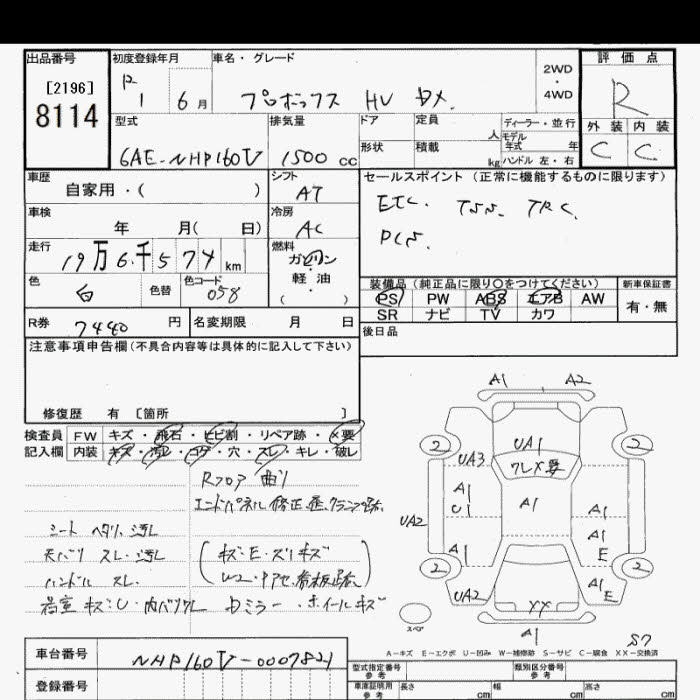 出品番号
[2196]
8114
初度登録年月
R 1 6 月
車名・グレード
プロボックス HV DX.
2WD
・
4WD
評価点
R
外装 内装
C C
型式
6AE-NHP160V
排気量
1500 cc
ドア
定員
人
形状
積載
kg
ディーラー・並行
モデル
年式 年
ハンドル 左・右
車歴
自家用・( )
シフト
AT
セールスポイント (正常に機能するものに限ります)
ETC. TSS. TRC.
PCS.
車検
年 月( 日)
冷房
AC
走行
19万6千574 km
燃料
ガソリン
・
軽油
( )
色
白
色替
色コード
058
装備品 (純正品に限り○をつけてください)
新車保証書
PS PW ABS エアB AW
SR ナビ TV カワ
有・無
R券
7440 円
名変期限 月 日
後日品
注意事項申告欄(不具合内容等は具体的に記入して下さい)
修復歴 有 [箇所 ]
検査員
記入欄
FW キズ・飛石・ヒビ割・リペア跡・×要
内装 キズ・汚レ・コゲ・穴・スレ・キレ・破レ
Rフロア 曲り
シート ヘタリ、汚レ
天バリ スレ・汚レ
ハンドル スレ
荷室 キズ・U・内バリワレ Dミラー・ホイールキズ
A1 A2
2 2
UA1
UA3
ワレ×要
A1
U1
A1
UA2
A1
A1
E
A1
2 2
UA2
A1
E
XX
A1
スペア
S7
A-キズ E-エクボ U-凹み W-補修跡 S-サビ C-腐食 XX-交換済
車台番号
NHP160V-0007821
登録番号
型式指定番号
参考
類別区分番号
参考
車庫証明用
参考
長さ cm
幅 cm
高さ cm